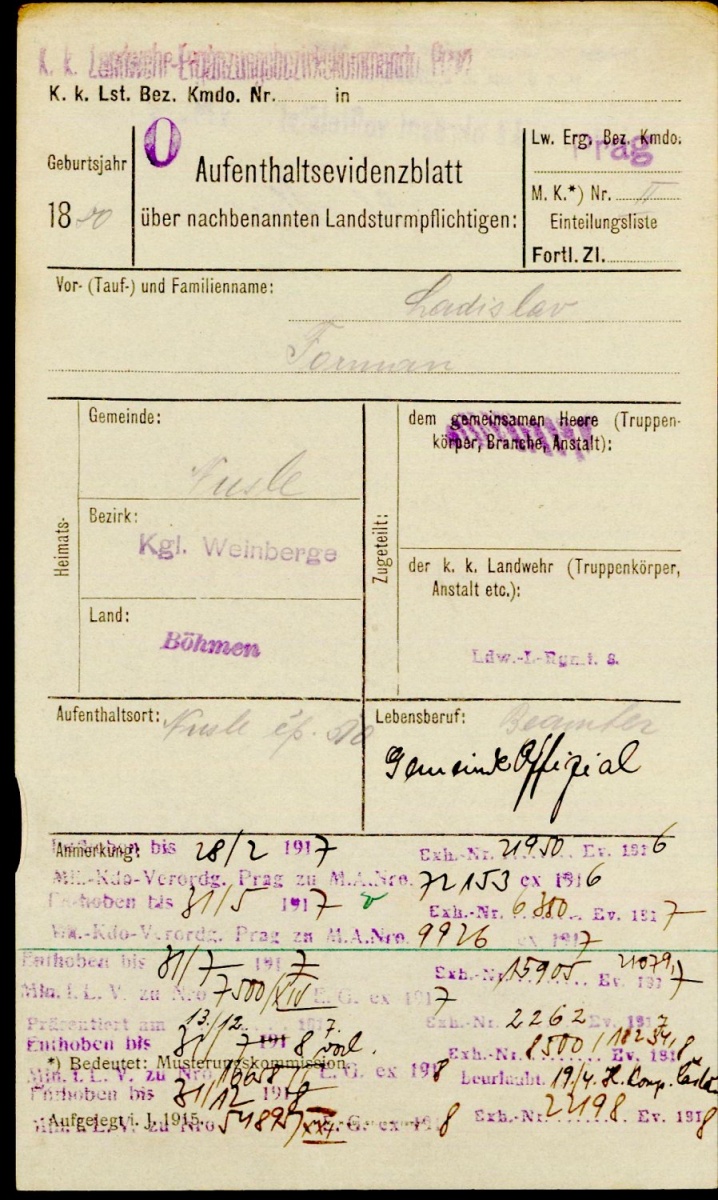 K. k. Landwehr-Ergänzungsbezirkskommando Prag
K. k. Lst. Bez. Kmdo. Nr. in
Geburtsjahr
1890
O
Aufenthaltsevidenzblatt
über nachbenannten Landsturmpflichtigen:
Lw. Erg. Bez. Kmdo:
Prag
M. K.*) Nr. II
Einteilungsliste
Fortl. Zl.
Vor- (Tauf-) und Familienname: Ladislav
Forman
Heimats-
Gemeinde:
Nusle
Bezirk:
Kgl. Weinberge
Land:
Böhmen
Zugeteilt:
dem gemeinsamen Heere (Truppen-
körper, Branche, Anstalt):
der k. k. Landwehr (Truppenkörper,
Anstalt etc.):
Ldw.-I-Rgmt. 8.
Aufenthaltsort: Nusle čp.
Lebensberuf: Beamter
Gemeinde Offizial
Anmerkung:
Enthoben bis 28/2 1917 Exh.-Nr. 21950 Ev. 1916
Mil.-Kdo-Verordg. Prag zu M.A.Nro. 72153 ex 1916
Enthoben bis 31/5 1917 Exh.-Nr. 6380 Ev. 1917
Mil.-Kdo-Verordg. Prag zu M.A.Nro. 9926 ex 1917
Enthoben bis 31/7 1917 Exh.-Nr. 15905 21079 Ev. 1917
Min. f. L. V. zu Nro 7500/XIV E. G. ex 1917
Präsentiert am 13./12. 1917. Exh.-Nr. 2262 Ev. 1917
Enthoben bis 31/7 1918 Exh.-Nr. 8500/18234 Ev. 1918
*) Bedeutet: Musterungskommission.
Min. f. L. V. zu Nro E. G. ex 1918 Beurlaubt. 19/4.
Enthoben bis 31/12 1918 Exh.-Nr. 22198 Ev. 1918
Aufgelegt i. J. 1915.
Min. f. L. V. zu Nro 54895/XXI E. G. ex 1918